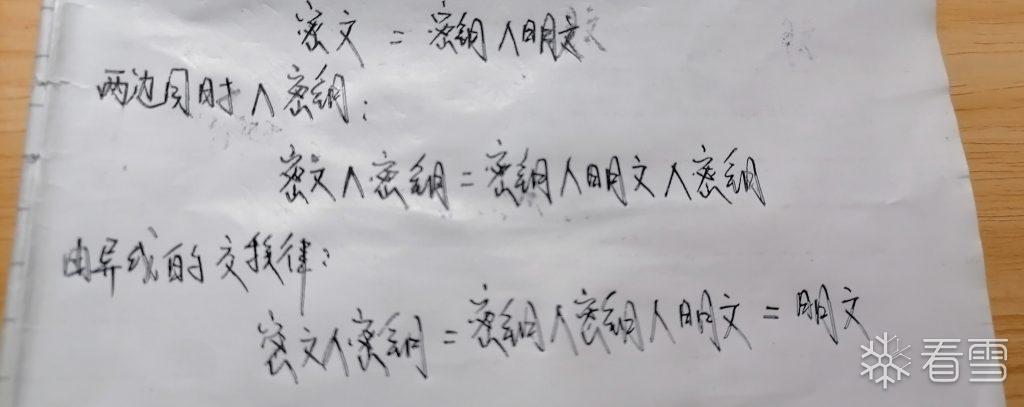 密文 = 密钥∧明文
两边同时∧密钥:
密文∧密钥 = 密钥∧明文∧密钥
由异或的交换律:
密文∧密钥 = 密钥∧密钥∧明文 = 明文
看雪